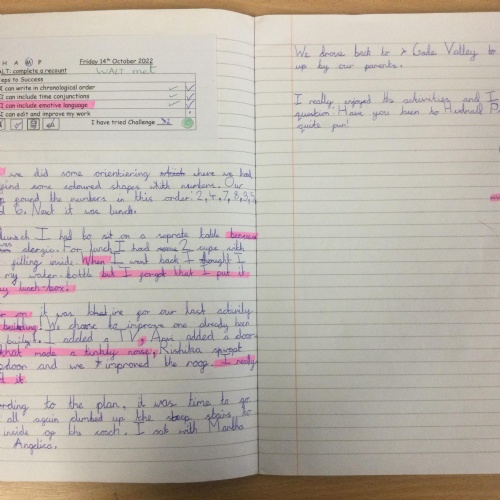 H A W P
Friday 14th October 2022
ALT: complete a recount
WALT met
teps to Success
I can write in chronological order
I can include time conjunctions
I can include emotive language
I can edit and improve my work
I have tried Challenge
we did some orientiering where we had
find some coloured shapes with numbers. Our
p found the numbers in this order: 2, 4, 7, 8, 3, 5
d 6. Next it was lunch.
lunch I had to sit on a seprate table because
was alergic. For lunch I had some 2 cups with
filling inside. When I went back I thought I
my water-bottle but I forgot that I put it
my lunch-box.
er on it was time for our last activity
building! We chose to improve one already been
built. I added a TV, added a door-
that made a tinkly noise, Rishika swept
door and we improved the roof. I really
d it.
ording to the plan, it was time to go
all again climbed up the steep stairs to
inside of the coach. I sat with Martha
Angelica.
We drove back to Gade Valley to
up by our parents.
I really enjoyed the activities and I
question. Have you been to Hudnall P
quite fun!